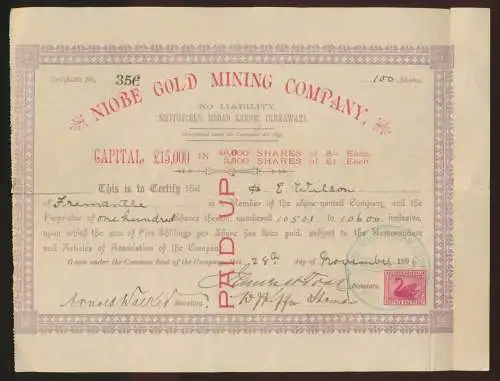 Certificate No. 356 100 Shares.
NIOBE GOLD MINING COMPANY,
NO LIABILITY.
CAPITAL, £15,000 IN 40,000 SHARES OF 5/- Each.
5,000 SHARES OF £1 Each.
This is to Certify that E. Willson
of Fremantle is a Member of the above-named Company, and the
Proprietor of One hundred Shares therein, numbered 10501 to 10600 inclusive,
upon which the sum of Five Shillings per Share has been paid, subject to the Memorandum
and Articles of Association of the Company.
Given under the Common Seal of the Company this 28th day of November 1896
PAID UP.
Directors.
Secretary.